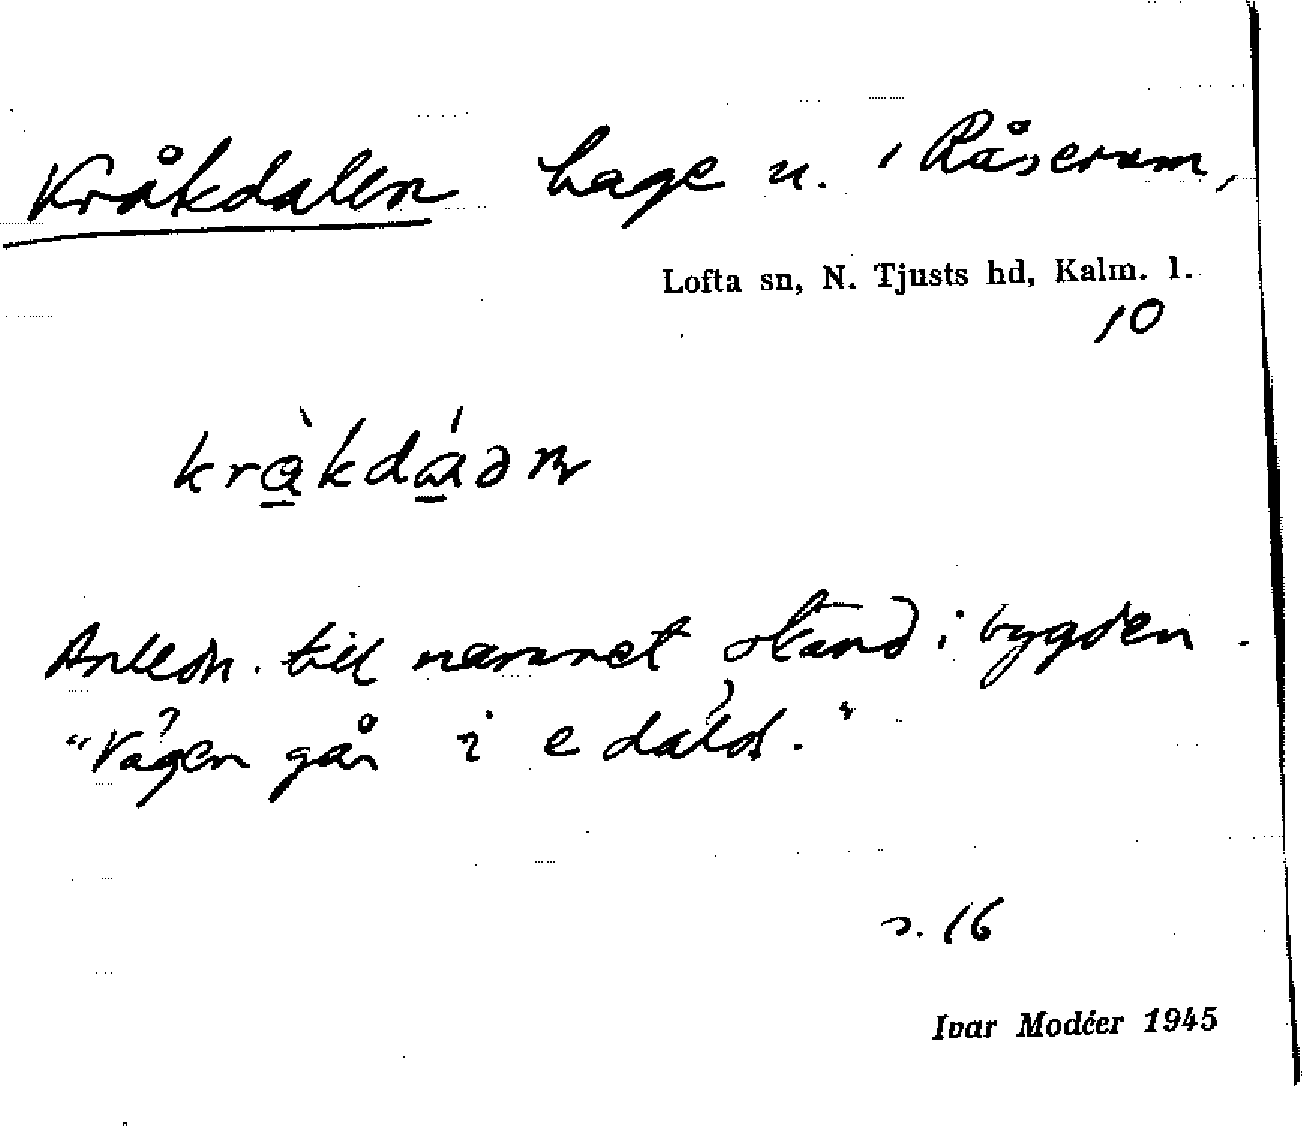 Kråkdalen hage n. i Råserum,
Lofta sn, N. Tjusts hd, Kalm. l.
10
till namnet i bygden.
"Vägen går i e
s. 16
Ivar Modéer 1945